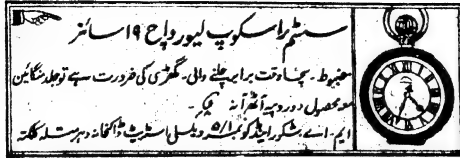 سسٹم راسکوپ لیور واچ ۱۹ سائز
مضبوط۔ سچا وقت برابر چلنے والی۔ گھڑی کی ضرورت ہے تو جلد منگائیں
معہ محصول دو روپیہ آٹھ آنہ
ایم۔ اے شکور اینڈ کو نمبر ۵/۱ ویلسلی اسٹریٹ ڈاکخانہ دہرمتلہ کلکتہ